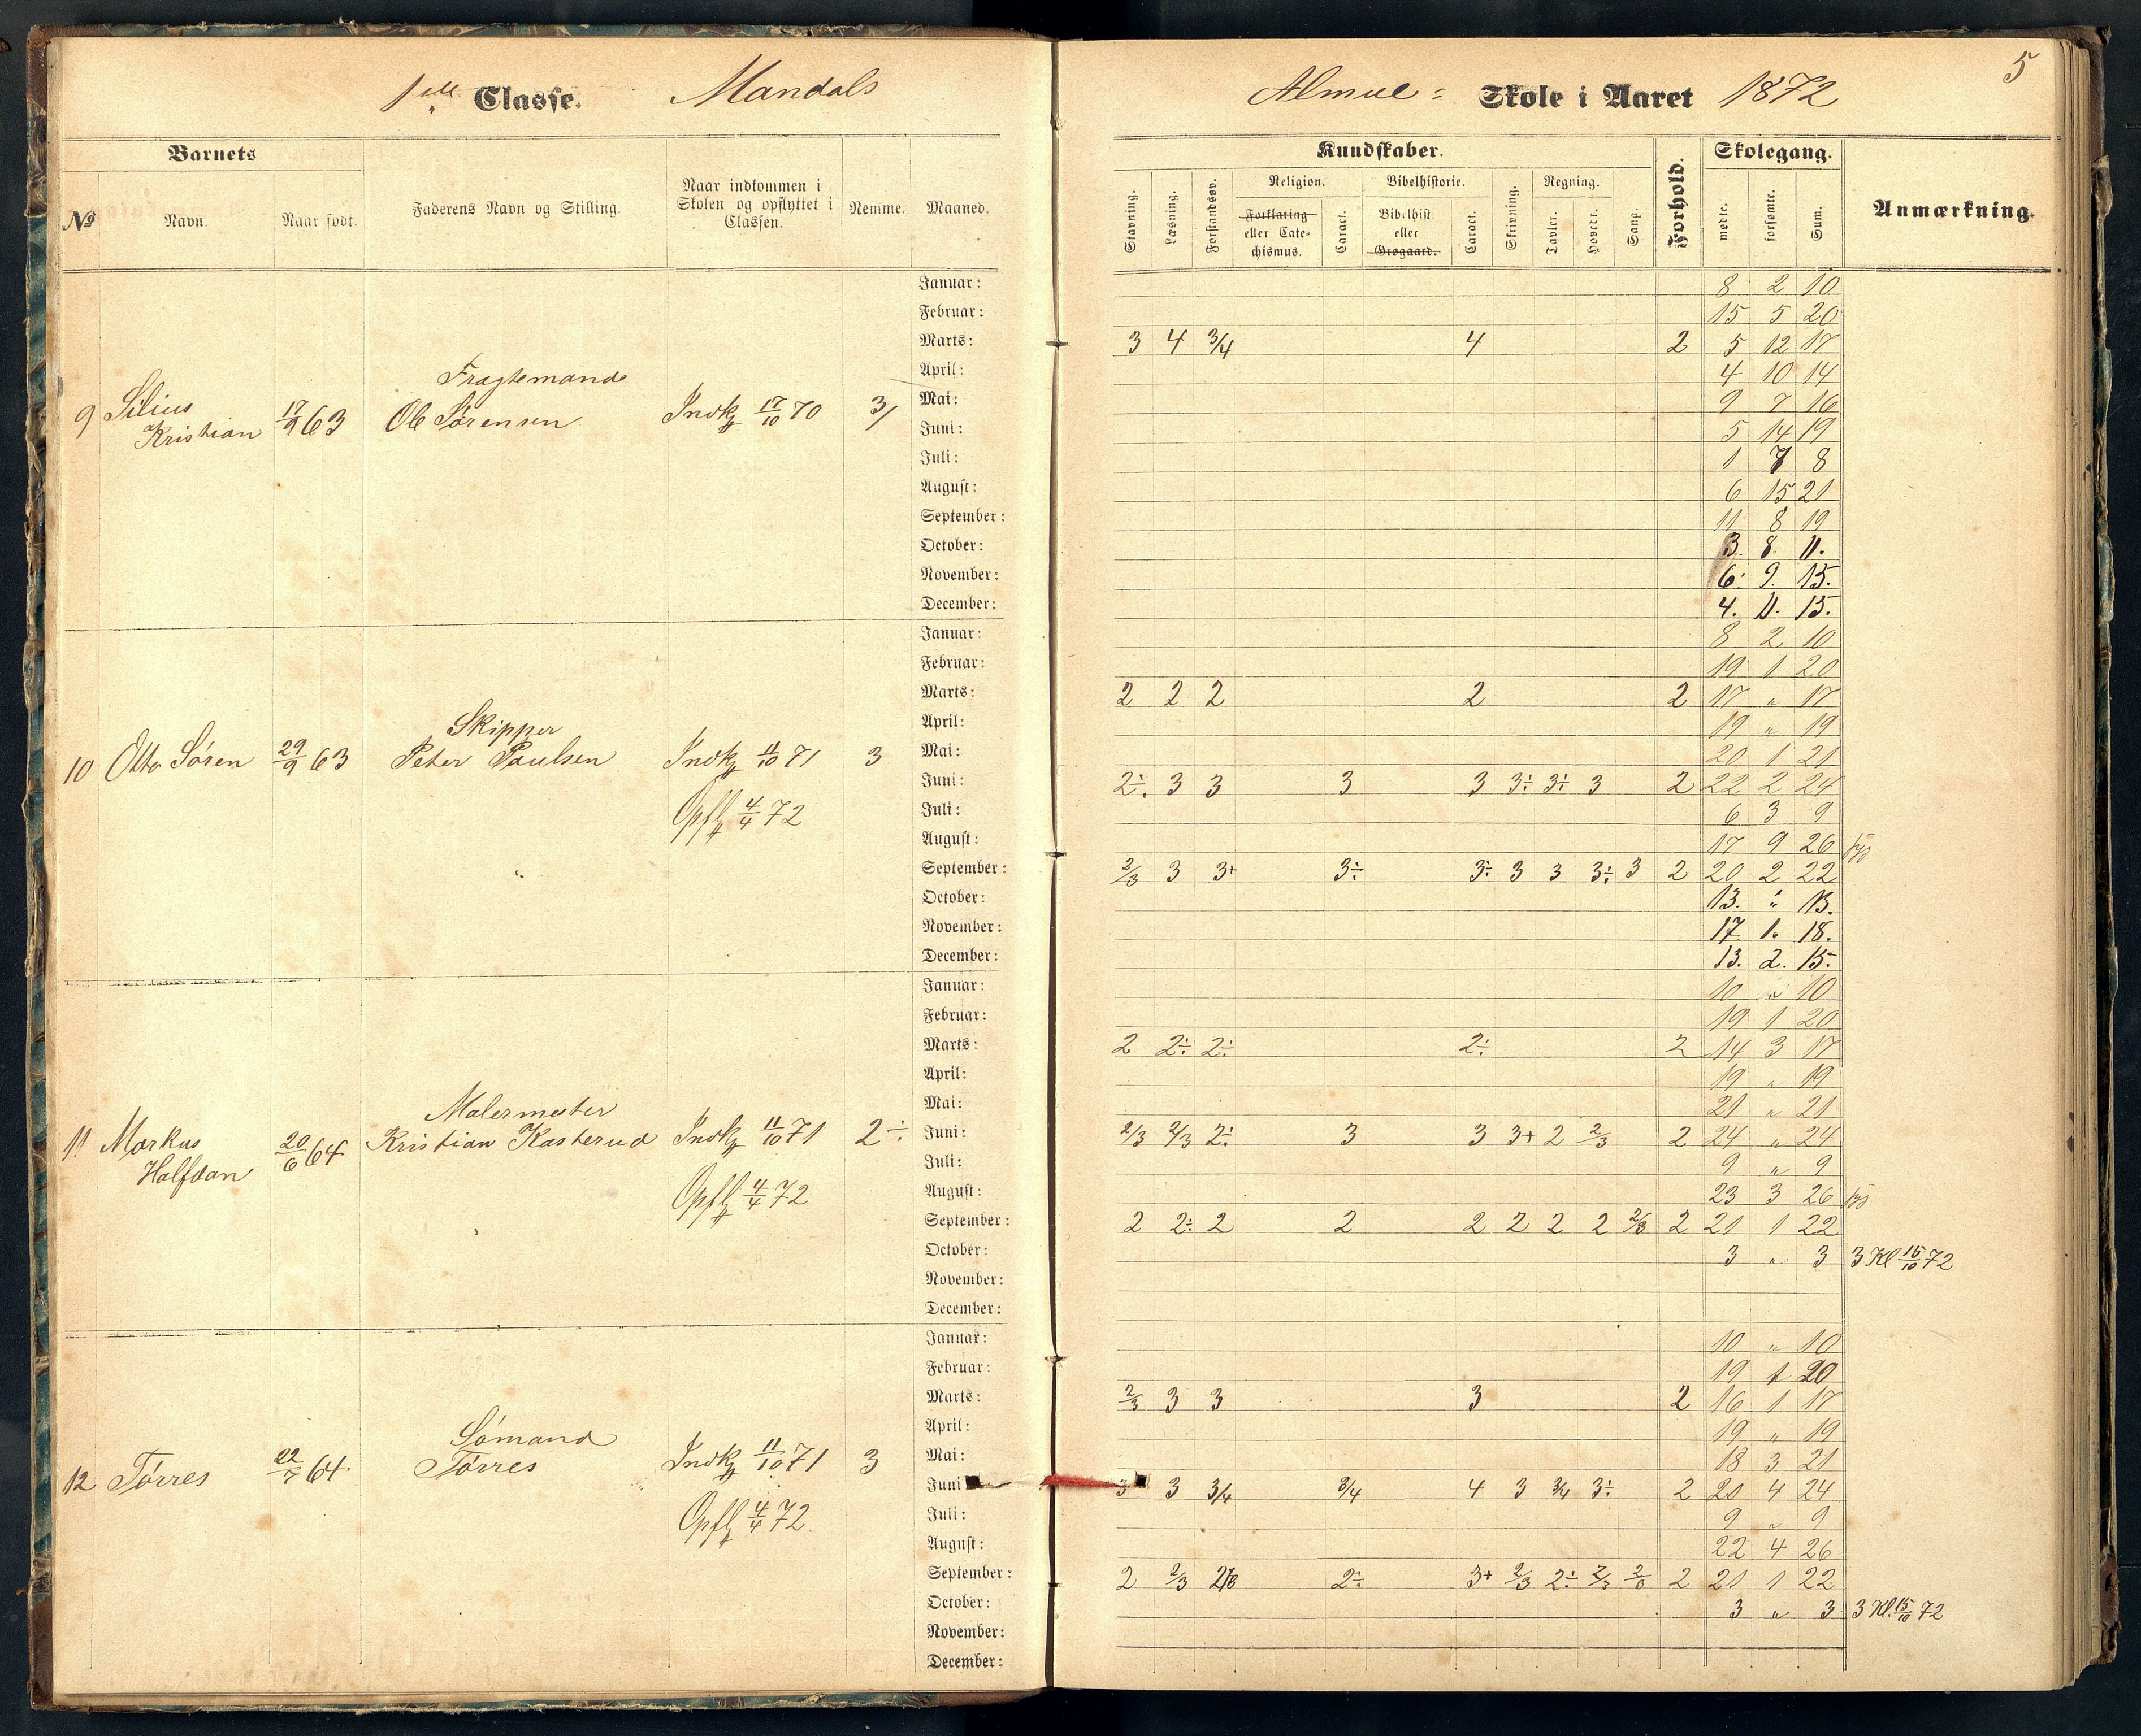 1ste Classe. Mandals Almue- Skole i Aaret 1872 5
Barnets Kundskaber. Forhold. Skolegang. Anmærkning.
№ Navn. Naar født. Faderens Navn og Stilling. Naar indkommen i Skolen og opflyttet i Classen. Nemme. Maaned.
Stavning. Læsning. Forstandsøv. Religion. Forklaring eller Catechismus. Caract. Bibelhistorie. Bibelhist. eller Grøgaard. Caract. Skrivning. Regning. Tavler. Hovedr. Sang. mødte. forsømte. Sum.
9 Silius Kristian 17/9 63 Fragtemand Ole Sørensen Indk 17/10 70 3/
Januar: 8 2 10
Februar: 15 5 20
Marts: 3 4 3/4 4 2 5 12 17
April: 4 10 14
Mai: 9 7 16
Juni: 5 14 19
Juli: 1 7 8
August: 6 15 21
September: 11 8 19
October: 3. 8. 11.
November: 6. 9. 15.
December: 4. 11. 15.
10 Otto Søren 29/9 63 Skipper Peter Paulsen Indk 11/10 71 3
Opfl 4/4 72
Januar: 8 2 10
Februar: 19 1 20
Marts: 2 2 2 2 2 17 " 17
April: 19 " 19
Mai: 20 1 21
Juni: 2÷ 3 3 3 3 3÷ 3÷ 3 2 22 2 24
Juli: 6 3 9
August: 17 9 26 syg
September: 2/3 3 3+ 3÷ 3÷ 3 3 3÷ 3 2 20 2 22
October: 13. " 13.
November: 17. 1. 18.
December: 13. 2. 15.
11 Markus Halfdan 20/6 64 Malermester Kristian Kasterud Indk 11/10 71 2÷
Opfl 4/4 72
Januar: 10 " 10
Februar: 19 1 20
Marts: 2 2÷ 2÷ 2÷ 2 14 3 17
April: 19 " 19
Mai: 21 " 21
Juni: 2/3 2/3 2÷ 3 3 3+ 2 2/3 2 24 " 24
Juli: 9 " 9
August: 23 3 26 syg
September: 2 2÷ 2 2 2 2 2 2 2/3 2 21 1 22
October: 3 " 3 3 Kl 15/10 72
November:
December:
12 Tørres 22/7 64 Sømand Tørres Indk 11/10 71 3
Opfl 4/4 72
Januar: 10 " 10
Februar: 19 1 20
Marts: 2/3 3 3 3 2 16 1 17
April: 19 " 19
Mai: 18 3 21
Juni 3 3 3/4 3/4 4 3 3/4 3÷ 2 20 4 24
Juli: 9 " 9
August: 22 4 26
September: 2 2/3 2/3 2÷ 3+ 2/3 2÷ 2/3 2/3 2 21 1 22
October: 3 " 3 3 Kl. 15/10 72
November:
December: